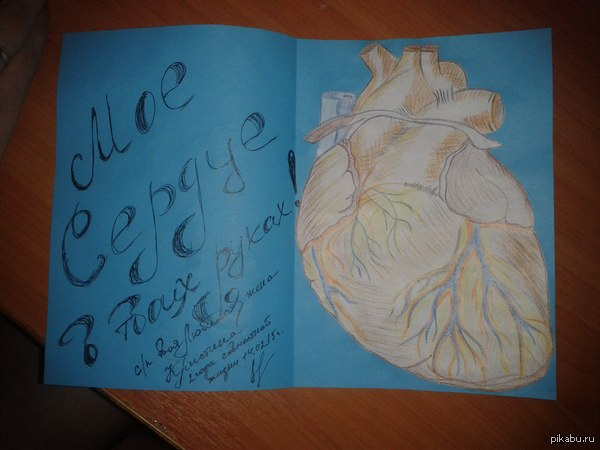 Мое
Сердце
в Твоих руках!
с/л Твоя Любимая жена
Кристина
2 года совместной
жизни 14.02.15г.
pikabu.ru